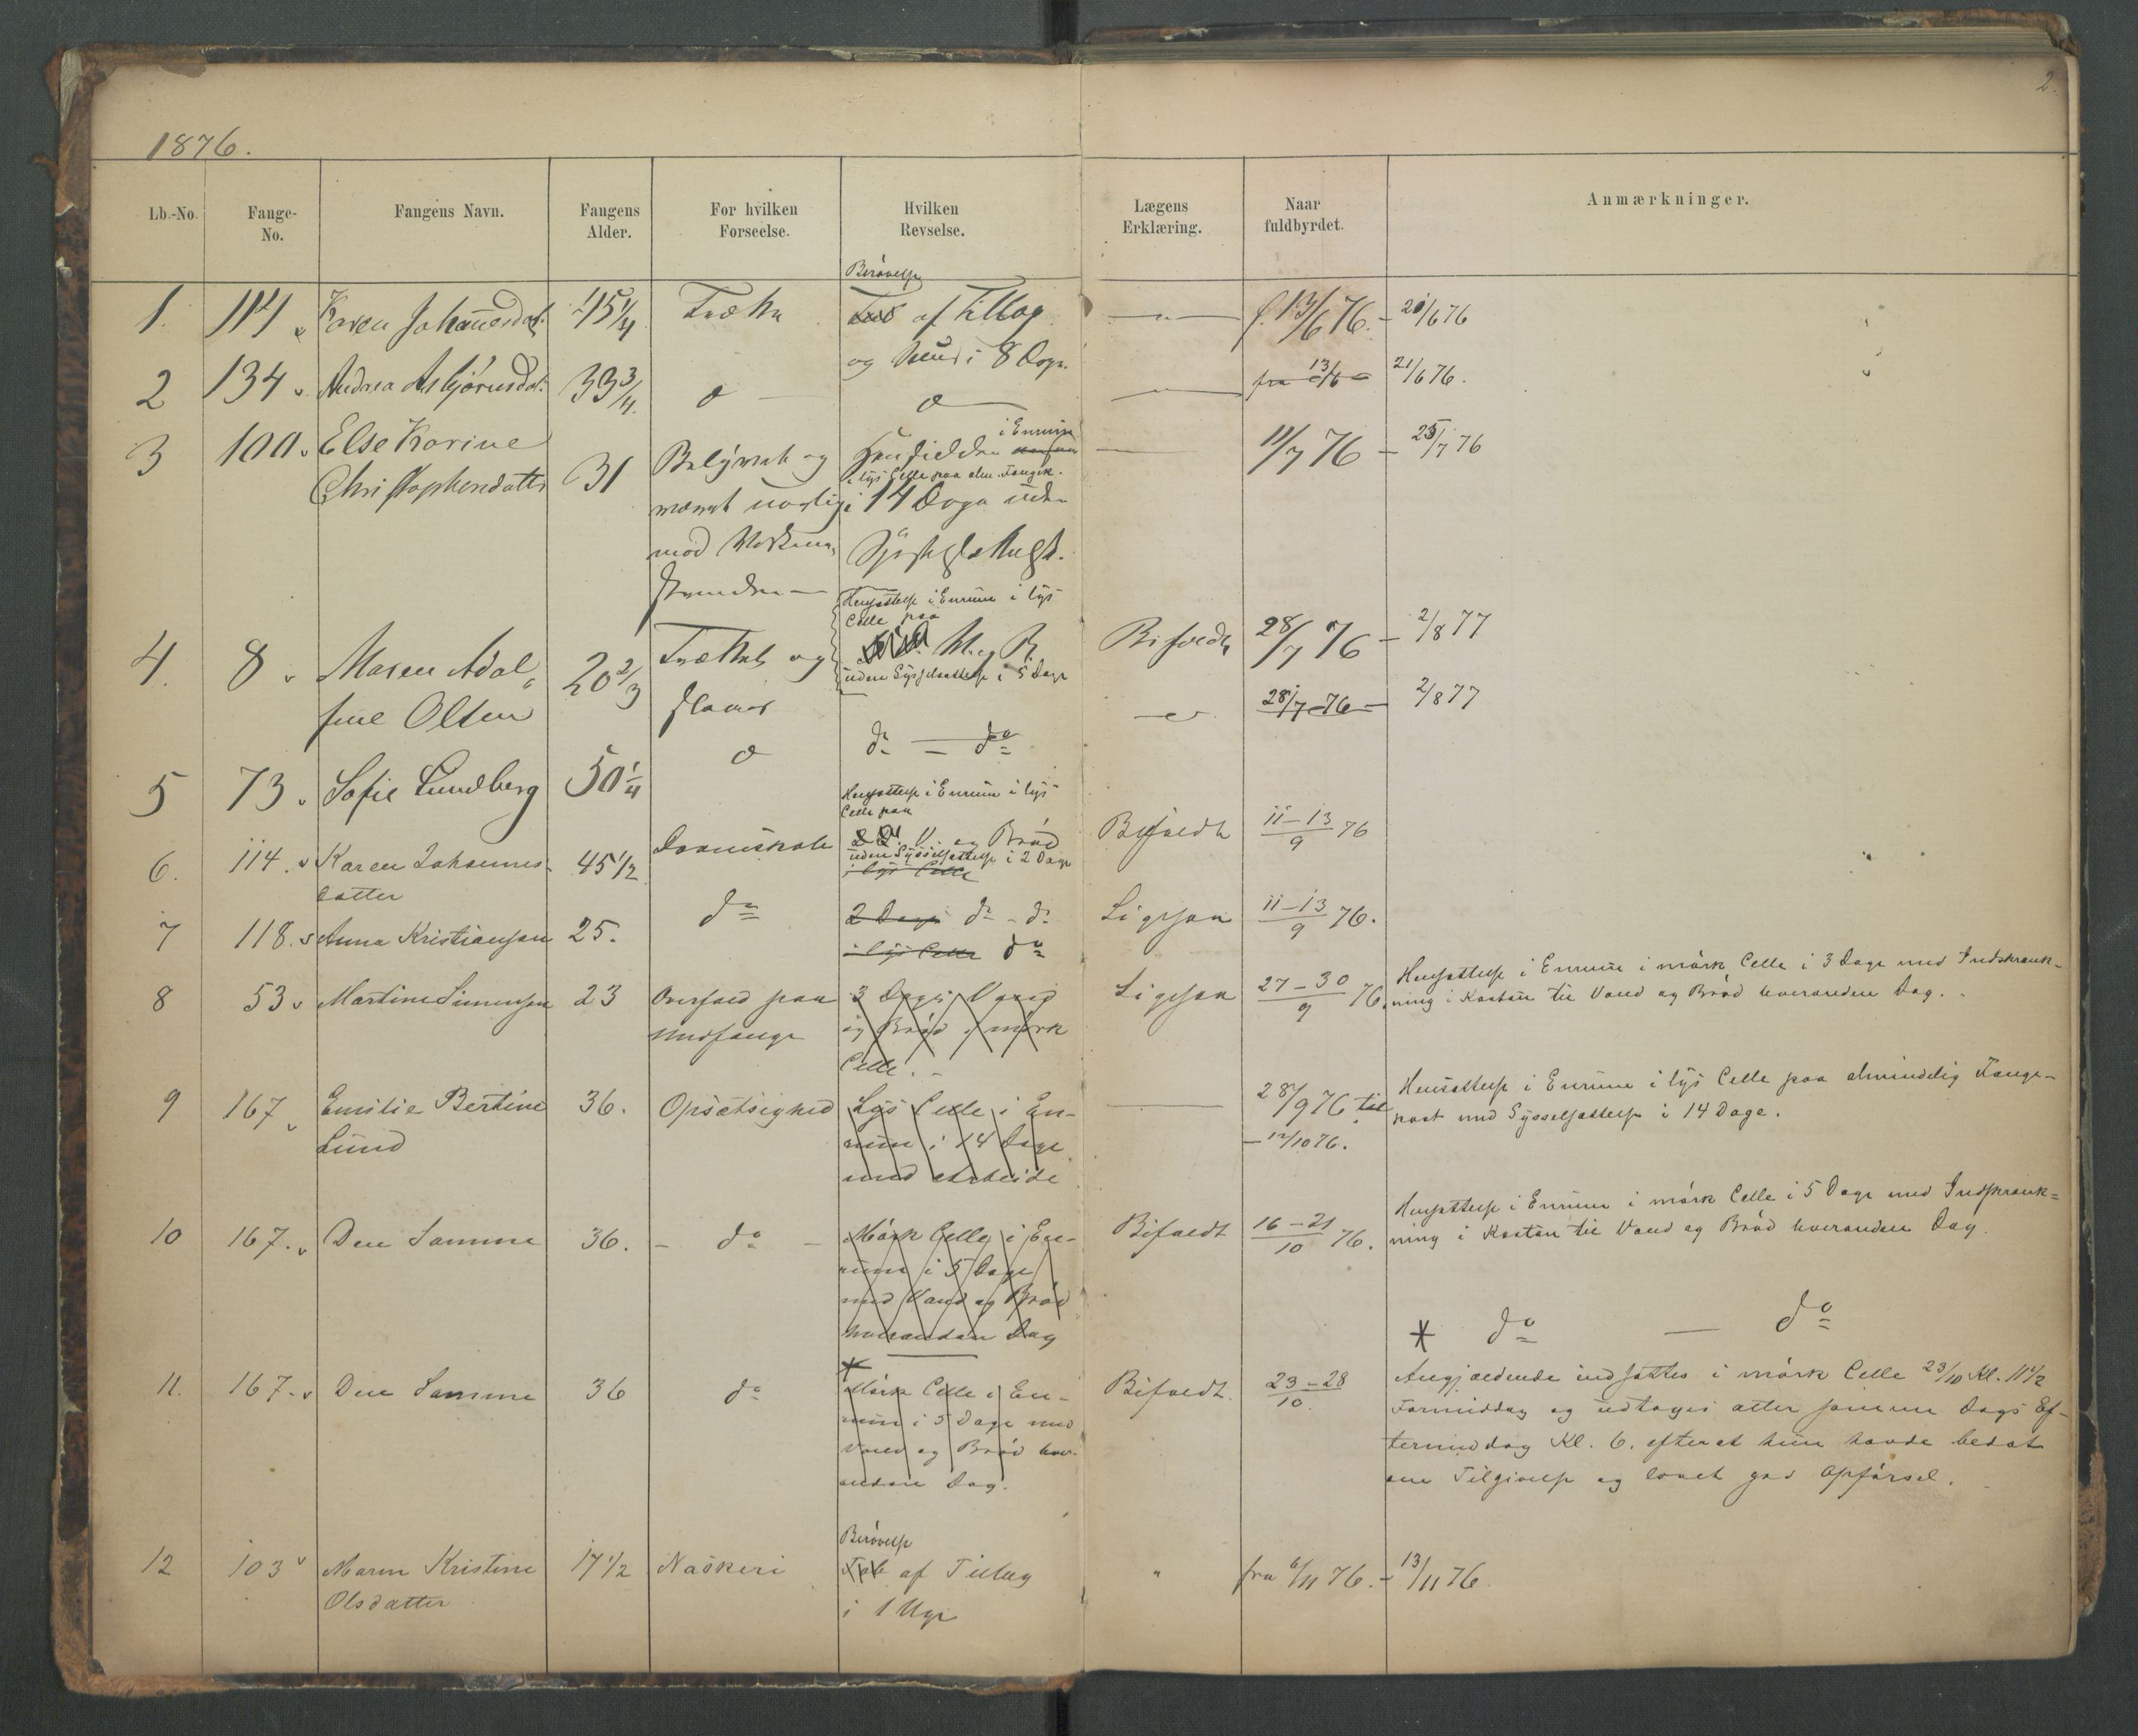 2.
1876.
Lb.-No. Fange-No. Fangens Navn. Fangens Alder. For hvilken Forseelse. Hvilken Revselse. Lægens Erklæring. Naar fuldbyrdet. Anmærkninger.
Berøvelse
1. Karen Johannesdat. 45 1/4 Trætte af Tillæg f. 13/6 76. - 20/6 76
og i 8 Døgn.
2 134 Andrea Asbjørnsdat. 33 3/4 fra 13/6 - 21/6 76.
3 100. Else Karine Christophersdatter 31 og i Enrum 11/7 76 - 25/7 76
i lys Celle paa alm. Fangek.
i 14 Døgn uden
mod
Hensættelse i Enrum i lys
Celle paa
4. 8 Maren Adol-
fine Olsen 20 2/3 Trætte og V. og B. Bifaldt 28/7 76 - 2/8 77
uden Sysselsættelse i 5 Dage
5 73 Sofie Lundberg 50 1/4 do — do 28/7 76 - 2/8 77
Hensættelse i Enrum i lys
Celle paa
6. 114. Karen Johannes-
datter 45 1/2 V. og Brød Bifaldt 11-13/9 76
uden Sysselsættelse i 2 Dage
i lys Celle
7 118. Anna Kristiansen 25. do 2 Dage do - do Ligesaa 11-13/9 76.
i lys Celle do
8 53 Martine Simensen 23 Overfald paa
Medfange 3 Dage Vand
og Brød i mørk
Celle. - Ligesaa 27-30/9 76. Hensættelse i Enrum i mørk Celle i 3 Dage med Indskrænk-
ning i Kosten til Vand og Brød hveranden Dag.
9 167 Emilie Bertine
Lund 36. Opsætsighed Lys Celle i En-
rum i 14 Dage
med Arbeide 28/9 76 til
- 12/10 76. Hensættelse i Enrum i lys Celle paa almindelig Fange-
kost med Sysselsættelse i 14 Dage.
10 167. Den Samme 36. - do - Mørk Celle i En-
rum i 5 Dage
med Vand og Brød
hveranden Dag Bifaldt 16-21/10 76. Hensættelse i Enrum i mørk Celle i 5 Dage med Indskrænk-
ning i Kosten til Vand og Brød hveranden Dag.
* do — do
11. 167. Den Samme 36 do * Mørk Celle i En-
rum i 5 Dage med
Vand og Brød hver-
anden Dag. Bifaldt. 23-28/10. Angjældende indsattes i mørk Celle 23/10 Kl. 11 1/2
Formiddag og udtoges atter samme Dags Ef-
termiddag Kl. 6. efterat hun havde bedet
om Tilgivelse og lovet god Opførsel.
Berøvelse
12 103 Maren Kristine
Olsdatter 17 1/2 Naskeri Tab af Tillæg
i 1 Uge " fra 6/11 76. - 13/11 76.